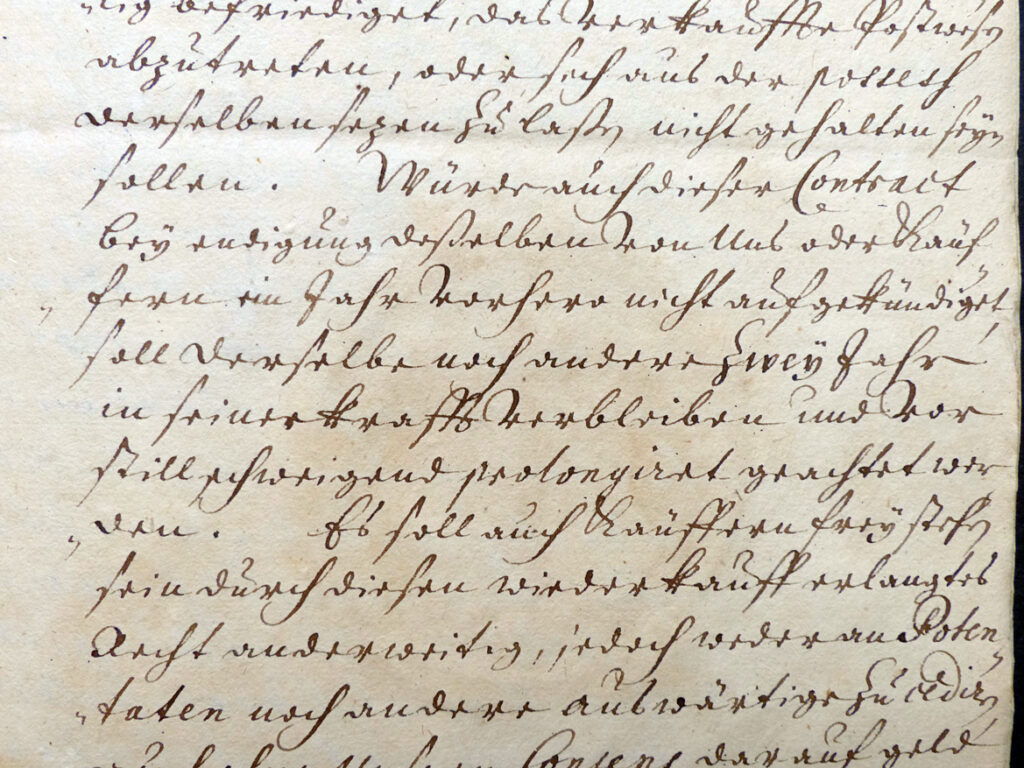 befriediget, das verkauffte Postwesen
abzutreten, oder sich aus der possess
derselben sezen zu laßen nicht gehalten seyn
sollen. Würde auch dieser Contract
bey endigung deßelben von Uns oder Käuf
fern ein Jahr vorhero nicht aufgekündiget,
soll derselbe noch andere zwey Jahr
in seiner krafft verbleiben und vor
stillschweigend prolongiret geachtet wer
den. Es soll auch Käuffern frey stehen
sein durch diesen wiederkauff erlangtes
Recht anderweitig, jedoch weder an Poten-
taten noch andere auswärtige zu cediren
Consens darauf geld